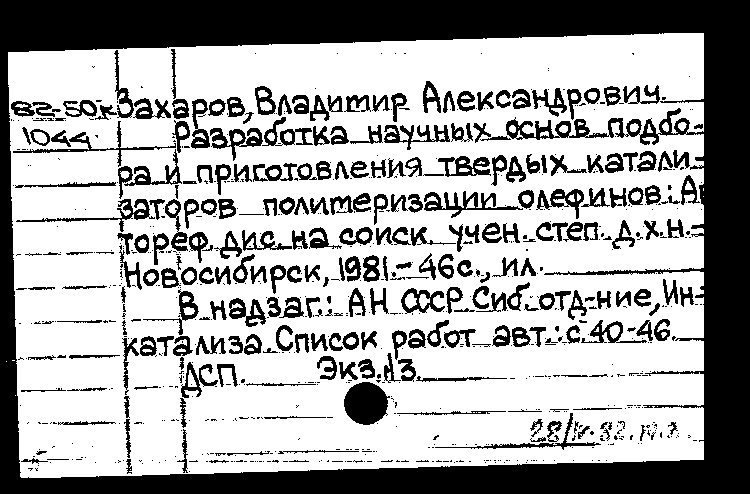 82-50к Захаров, Владимир Александрович.
1044 Разработка научных основ подбо-
ра и приготовления твердых катали-
заторов полимеризации олефинов: Ав
тореф. дис. на соиск. учен. степ. д.х.н.-
Новосибирск, 1981.- 46с., ил.
В надзаг.: АН СССР. Сиб. отд-ние, Ин-
катализа. Список работ авт.: с.40-46.
ДСП. Экз.
28/IV-82.